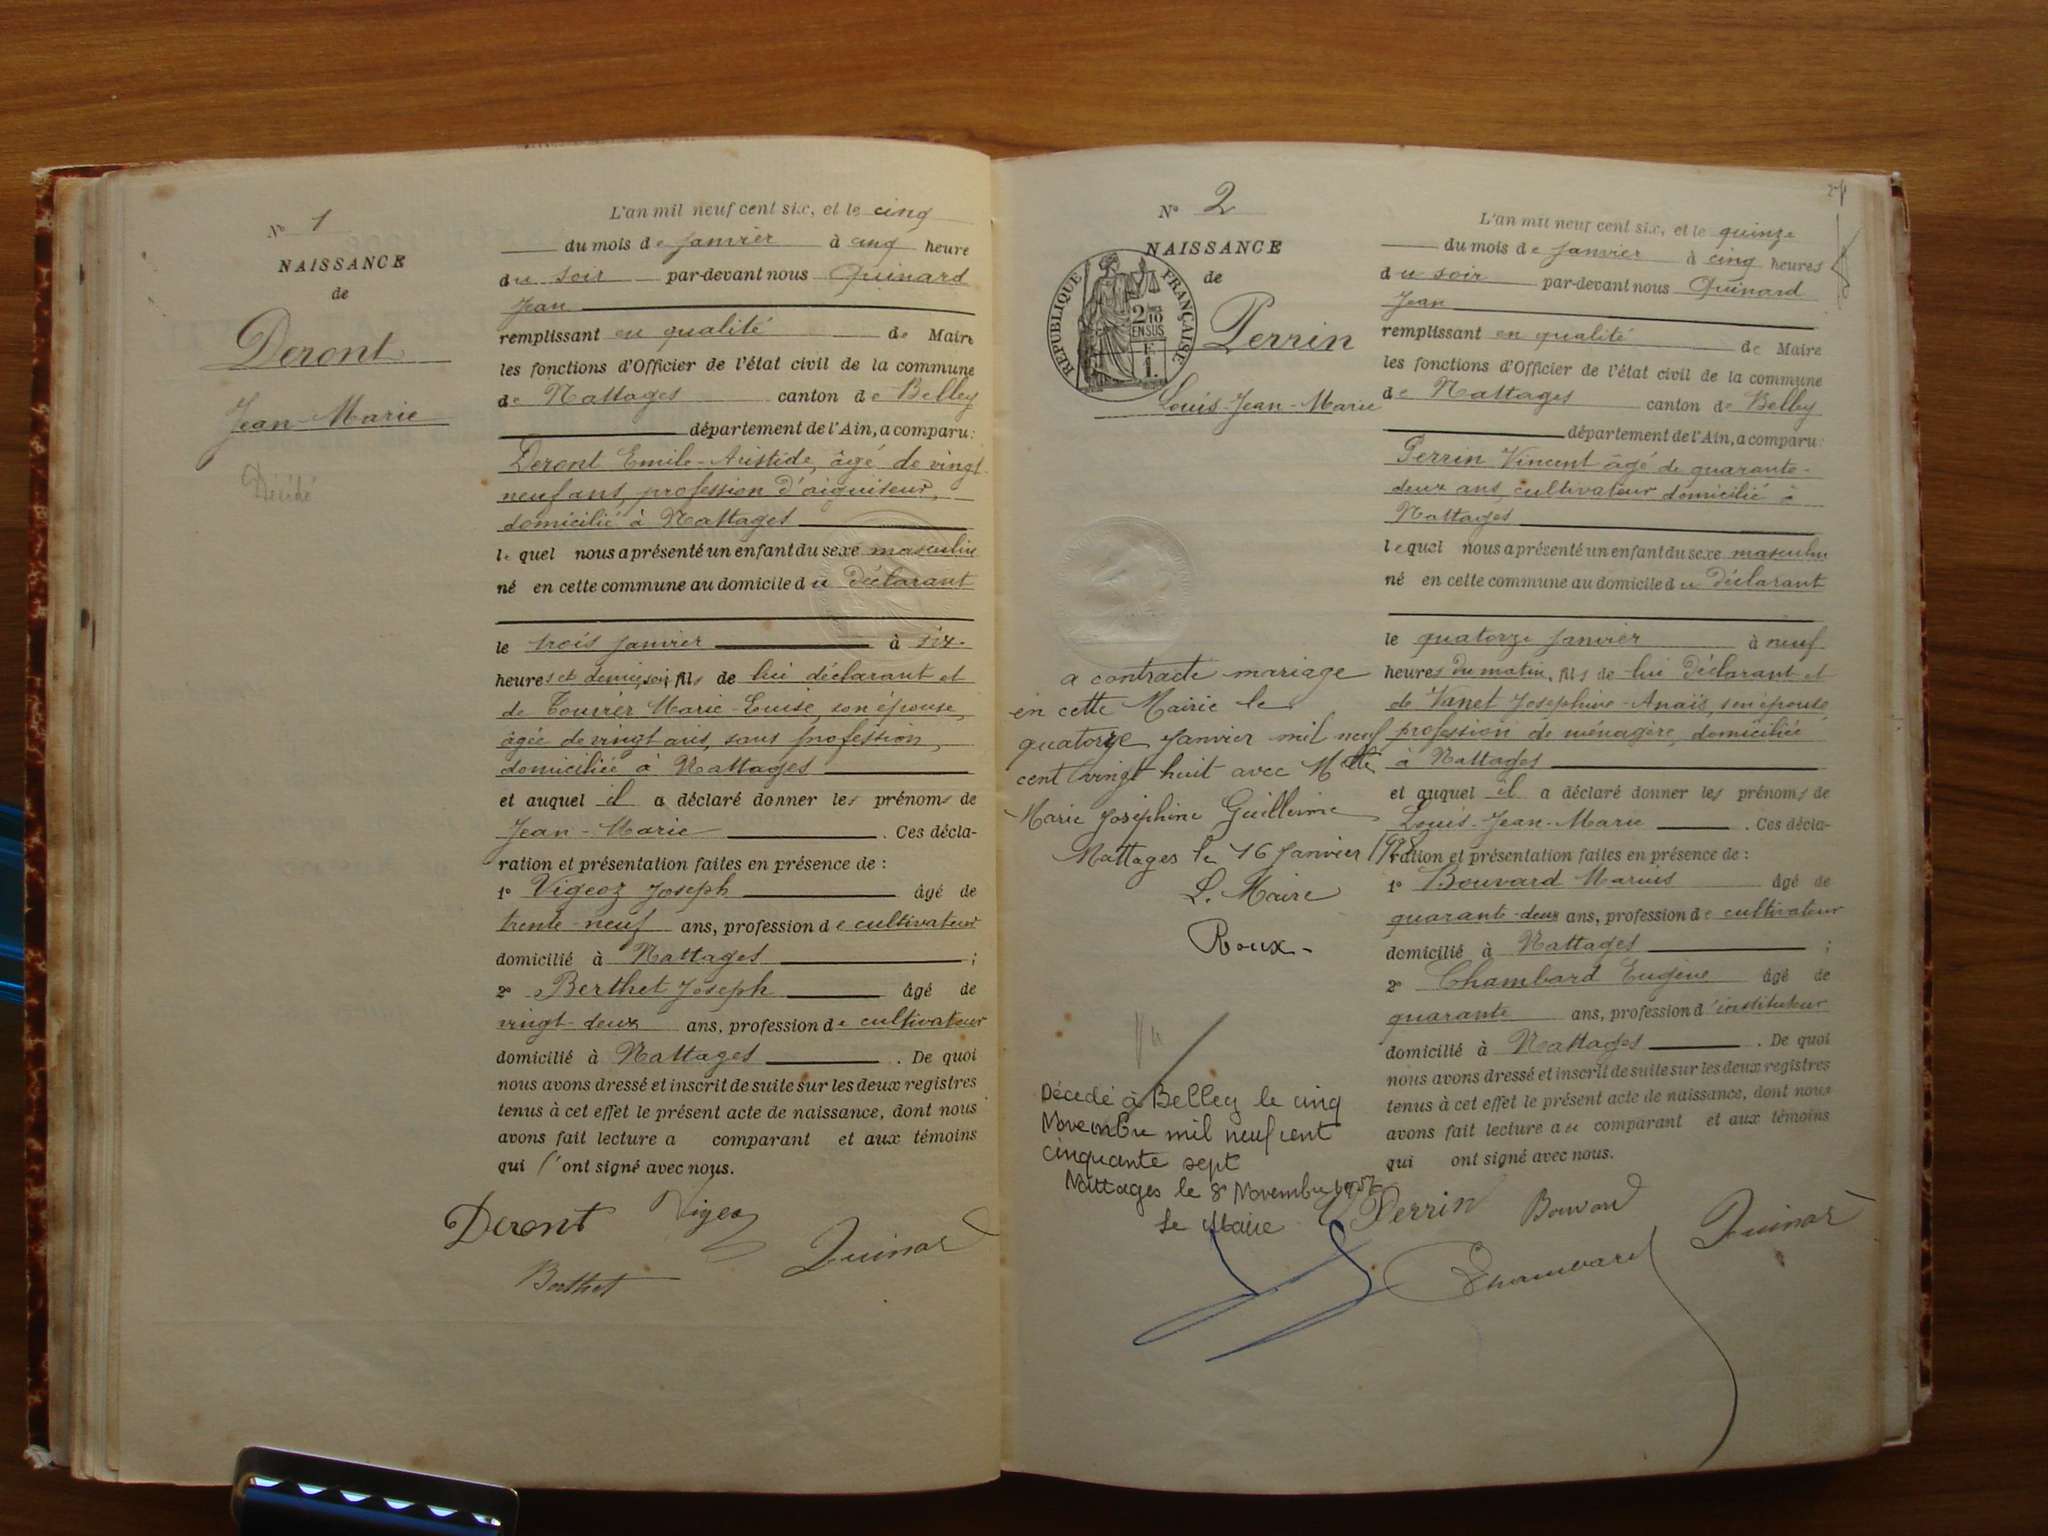 N° 1
NAISSANCE
de
Deront
Jean-Marie
Décédé
L'an mil neuf cent six, et le cinq
du mois de Janvier à cinq heure
du soir par-devant nous Quinard
Jean
remplissant en qualité de Maire
les fonctions d'Officier de l'état civil de la commune
de Nattages canton de Belley
département de l'Ain, a comparu :
Deront Emile-Aristide, âgé de vingt-
neuf ans, profession d'aiguiseur,
domicilié à Nattages
lequel nous a présenté un enfant du sexe masculin
né en cette commune au domicile du déclarant
le trois Janvier à six
heures et demie soir, fils de lui déclarant et
de Marie-Louise, son épouse,
âgée de vingt ans, sans profession,
domiciliée à Nattages
et auquel il a déclaré donner les prénoms de
Jean-Marie . Ces décla-
ration et présentation faites en présence de :
1° Vigeoz Joseph âgé de
trente-neuf ans, profession de cultivateur
domicilié à Nattages ;
2° Berthet Joseph âgé de
vingt-deux ans, profession de cultivateur
domicilié à Nattages . De quoi
nous avons dressé et inscrit de suite sur les deux registres
tenus à cet effet le présent acte de naissance, dont nous
avons fait lecture a comparant et aux témoins
qui l'ont signé avec nous.
Deront Vigeoz
Berthet Quinard
N° 2
NAISSANCE
de
RÉPUBLIQUE FRANÇAISE
2/10
EN SUS
F
1.
Perrin
Louis-Jean-Marie
a contracté mariage
en cette Mairie le
quatorze Janvier mil neuf
cent vingt huit avec Melle
Marie Joséphine Guillerme
Nattages le 16 Janvier 1928
L. Maire
Roux
Décédé à Belley le cinq
Novembre mil neuf cent
cinquante sept
Nattages le 8 Novembre 1957
Le Maire
L'an mil neuf cent six, et le quinze
du mois de Janvier à cinq heures
du soir par-devant nous Quinard
Jean
remplissant en qualité de Maire
les fonctions d'Officier de l'état civil de la commune
de Nattages canton de Belley
département de l'Ain, a comparu :
Perrin Vincent âgé de quarante-
deux ans, cultivateur domicilié à
Nattages
lequel nous a présenté un enfant du sexe masculin
né en cette commune au domicile du déclarant
le quatorze Janvier à neuf
heures du matin, fils de lui déclarant et
de Vanet Joséphine-Anaïs, son épouse,
profession de ménagère, domiciliée
à Nattages
et auquel il a déclaré donner les prénoms de
Louis-Jean-Marie . Ces décla-
ration et présentation faites en présence de :
1° Bouvard Marius âgé de
quarante-deux ans, profession de cultivateur
domicilié à Nattages ;
2° Chambard Eugène âgé de
quarante ans, profession d'instituteur
domicilié à Nattages . De quoi
nous avons dressé et inscrit de suite sur les deux registres
tenus à cet effet le présent acte de naissance, dont nous
avons fait lecture au comparant et aux témoins
qui ont signé avec nous.
V Perrin Bouvard
Chambard Quinard